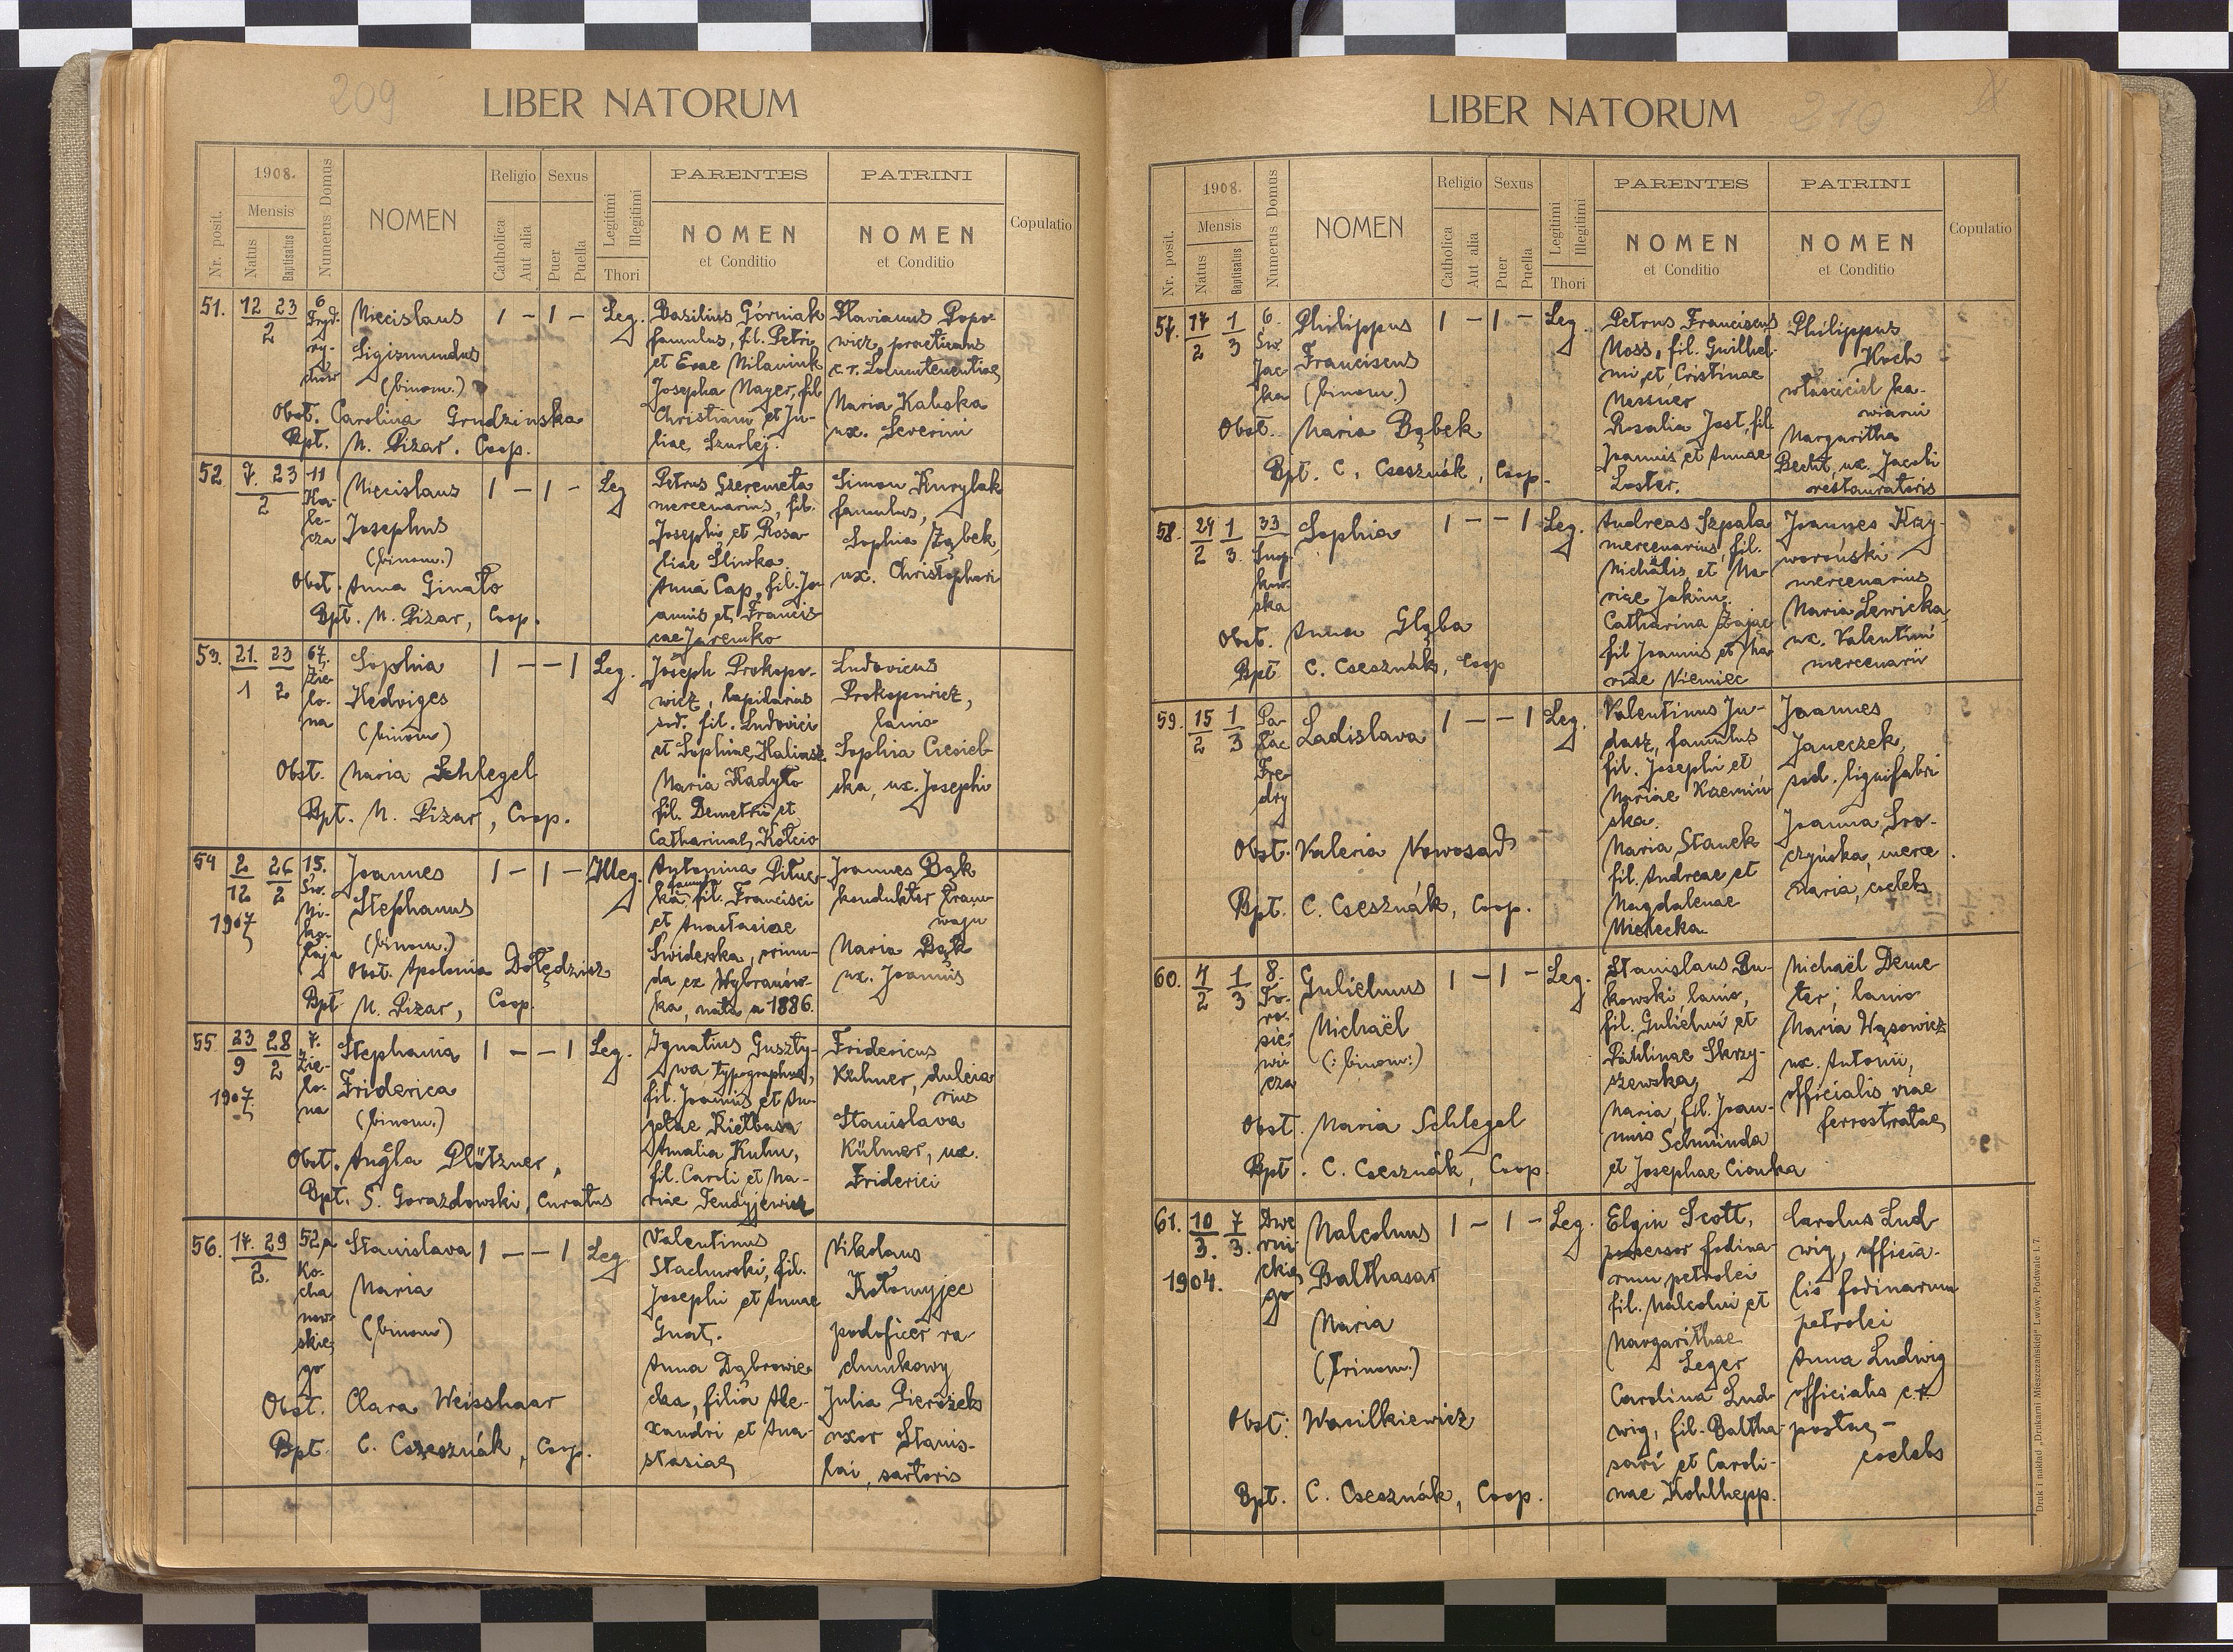 209
LIBER NATORUM
Nr. posit.
1908.
Mensis
Natus
Baptisatus
Numerus Domus
NOMEN
Religio
Catholica
Aut alia
Sexus
Puer
Puella
Legitimi
Illegitimi
Thori
PARENTES
NOMEN
et Conditio
PATRINI
NOMEN
et Conditio
Copulatio
51.
12 23
2
6
Fryd-
ry-
chów
Miecislaus
Sigismundus
(binom.)
Obst. Carolina Grudzinska
Bpt. M. Pizar. Coop.
1 - 1 -
Leg.
Basilius Górniak
famulus, fil. Petri
et Evae Milaniuk
Josepha Mayer, fil
Christiani et Ju-
liae Szurlej.
Flavianus Popo-
wicz, practicans
c. r. Locumtenentiae
Maria Kaliska
ux. Severini
52
7. 23
2
11
Ka-
le-
cza
Miecislaus
Josephus
(binom.)
Obst. Anna Ginato
Bpt. M. Pizar, Coop.
1 - 1 -
Leg
Petrus Szeremeta
mercenarius, fil.
Josephi et Rosa
liae Sliwka
Anna Cap, fil. Jo-
annis et Francis
cae Jaremko
Simon Kurylak
famulus,
Sophia Ząbek
ux. Christophori
53.
21. 23
1 2
67.
Zie-
lo-
na
Sophia
Hedviges
(binom)
Obst. Maria Schlegel
Bpt. M. Pizar, Coop.
1 - - 1
Leg.
Joseph Prokopo-
wicz, lapidarius
sod. fil. Ludovici
et Sophiae Kaliasz
Maria Kadyło
fil. Demetrii et
Catharinae Kołcio
Ludovicus
Prokopowicz,
lanio
Sophia Ciesiel-
ska, ux. Josephi
54
2 26
12 2
1907
15.
Św.
Mi-
ko-
łaja
Joannes
Stephanus
(binom.)
Obst. Apolonia Dołędzisz
Bpt M. Pizar, Coop.
1 - 1 -
Illeg.
Antonina Pitner-
ka, famula fil. Francisci
et Anastasiae
Swiderska, oriun-
da ex Wybranów-
ka, nata a 1886.
Joannes Bąk
konduktor tram-
waju
Maria Bąk
ux. Joannis
55.
23 28
9 2
1907
7.
Zie-
lo-
na
Stephania
Friderica
(binom.)
Obst. Angla Plötzner,
Bpt. S. Gorazdowski, Curatus
1 - - 1
Leg.
Ignatius Guszty-
wa typographus,
fil. Joannis et An-
gelae Kiełbasa
Amalia Kuhn,
fil. Caroli et Ma-
riae Tendyjewicz
Fridericus
Kühner, dulcia
rius
Stanislava
Kühner, ux.
Friderici
56.
14. 29
2.
52a
Ko-
cha
now-
skie-
go
Stanislava
Maria
(binom)
Obst. Clara Weisshaar
Bpt. C. Csesznák, Coop.
1 - - 1
Leg
Valentinus
Stachurski, fil.
Josephi et Annae
Gnat.
Anna Dąbrowiec-
cka, filia Ale-
xandri et Ana-
stasiae
Nikolaus
Kołomyjec
podoficer ra-
chunkowy
Julia Pierożek
uxor Stanis-
lai, sartoris
LIBER NATORUM
210
Nr. posit.
1908.
Mensis
Natus
Baptisatus
Numerus Domus
NOMEN
Religio
Catholica
Aut alia
Sexus
Puer
Puella
Legitimi
Illegitimi
Thori
PARENTES
NOMEN
et Conditio
PATRINI
NOMEN
et Conditio
Copulatio
57.
17 1
2 3
6.
Św.
Jac
ka
Philippus
Franciscus
(binom.)
Obst. Maria Bąbek
Bpt. C. Csesznák, Coop.
1 - 1 -
Leg.
Petrus Franciscus
Moss, fil. Guilhel-
mi et Cristinae
Messner
Rosalia Jost, fil.
Joannis et Annae
Loster.
Philippus
Koch
właściciel ka-
wiarni
Margaritha
Becht, ux. Jacobi
restauratoris
58.
24 1
2 3.
33
Snop-
kow-
ska
Sophia
Obst. Anna Głąba
Bpt C. Csesznák, Coop
1 - - 1
Leg.
Andreas Szpala
mercenarius, fil.
Michaelis et Ma-
riae Jakim.
Catharina Zając
fil Joannis et Ma
riae Niemiec
Joannes Krzy-
woroński
mercenarius
Maria Lewicka,
ux. Valentini
mercenarii
59.
15 1
2 3
Pa-
łac
Fre-
dry
Ladislava
Obst. Valeria Nowosad
Bpt. C. Csesznák, Coop.
1 - - 1
Leg.
Valentinus Ju-
dasz, famulus
fil. Josephi et
Mariae Kamiń-
ska.
Maria Stanek
fil. Andreae et
Magdalenae
Mielecka.
Joannes
Janeczek,
sod. lignifabri
Joanna Sro-
czyńska, merce
naria, coelebs
60.
4 1
2 3
8.
To-
ro-
sie-
wi-
cza
Gulielmus
Michaël
(: binom:)
Obst. Maria Schlegel
Bpt. C. Csesznák, Coop.
1 - 1 -
Leg.
Stanislaus Bu-
kowski, lanio,
fil. Gulielmi et
Paulinae Skrzy-
szewska,
Maria, fil. Joan-
nis Schminda
et Josephae Cionka
Michaël Deme
ter, lanio
Maria Wąsowicz
ux. Antonii,
officialis viae
ferrostratae
61.
10 7
3. 3.
1904.
Dwe
rni-
ckie
go
Malcolmus
Balthasar
Maria
(trinom.)
Obst: Wasilkiewicz
Bpt. C. Csesznák, Coop.
1 - 1 -
Leg.
Elgin Scott,
possessor fodina-
rum petrolei
fil. Malcolmi et
Margarithae
Leger
Carolina Lud-
wig, fil. Baltha-
sari et Caroli-
nae Kohlhepp.
Carolus Lud
wig, officia-
lis fodinarum
petrolei
Anna Ludwig
officialis c. r.
postae -
coelebs
Druk i nakład „Drukarni Mieszczańskiej“ Lwów, Podwale l. 7.